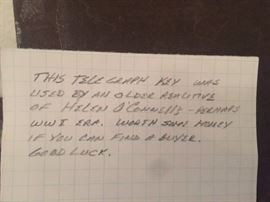 THIS TELEGRAPH KEY WAS
USED BY AN OLDER RELATIVE
OF HELEN O'CONNELL'S - PERHAPS
WWI ERA. WORTH SOME MONEY
IF YOU CAN FIND A BUYER.
GOOD LUCK.